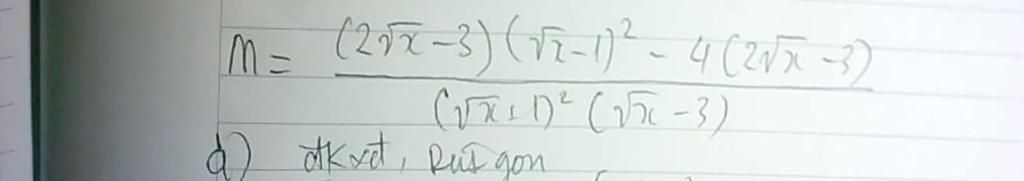 M = \frac{(2\sqrt{x}-3)(\sqrt{x}-1)^2 - 4(2\sqrt{x}-3)}{(\sqrt{x}+1)^2(\sqrt{x}-3)}
a) đkxđ, Rút gọn